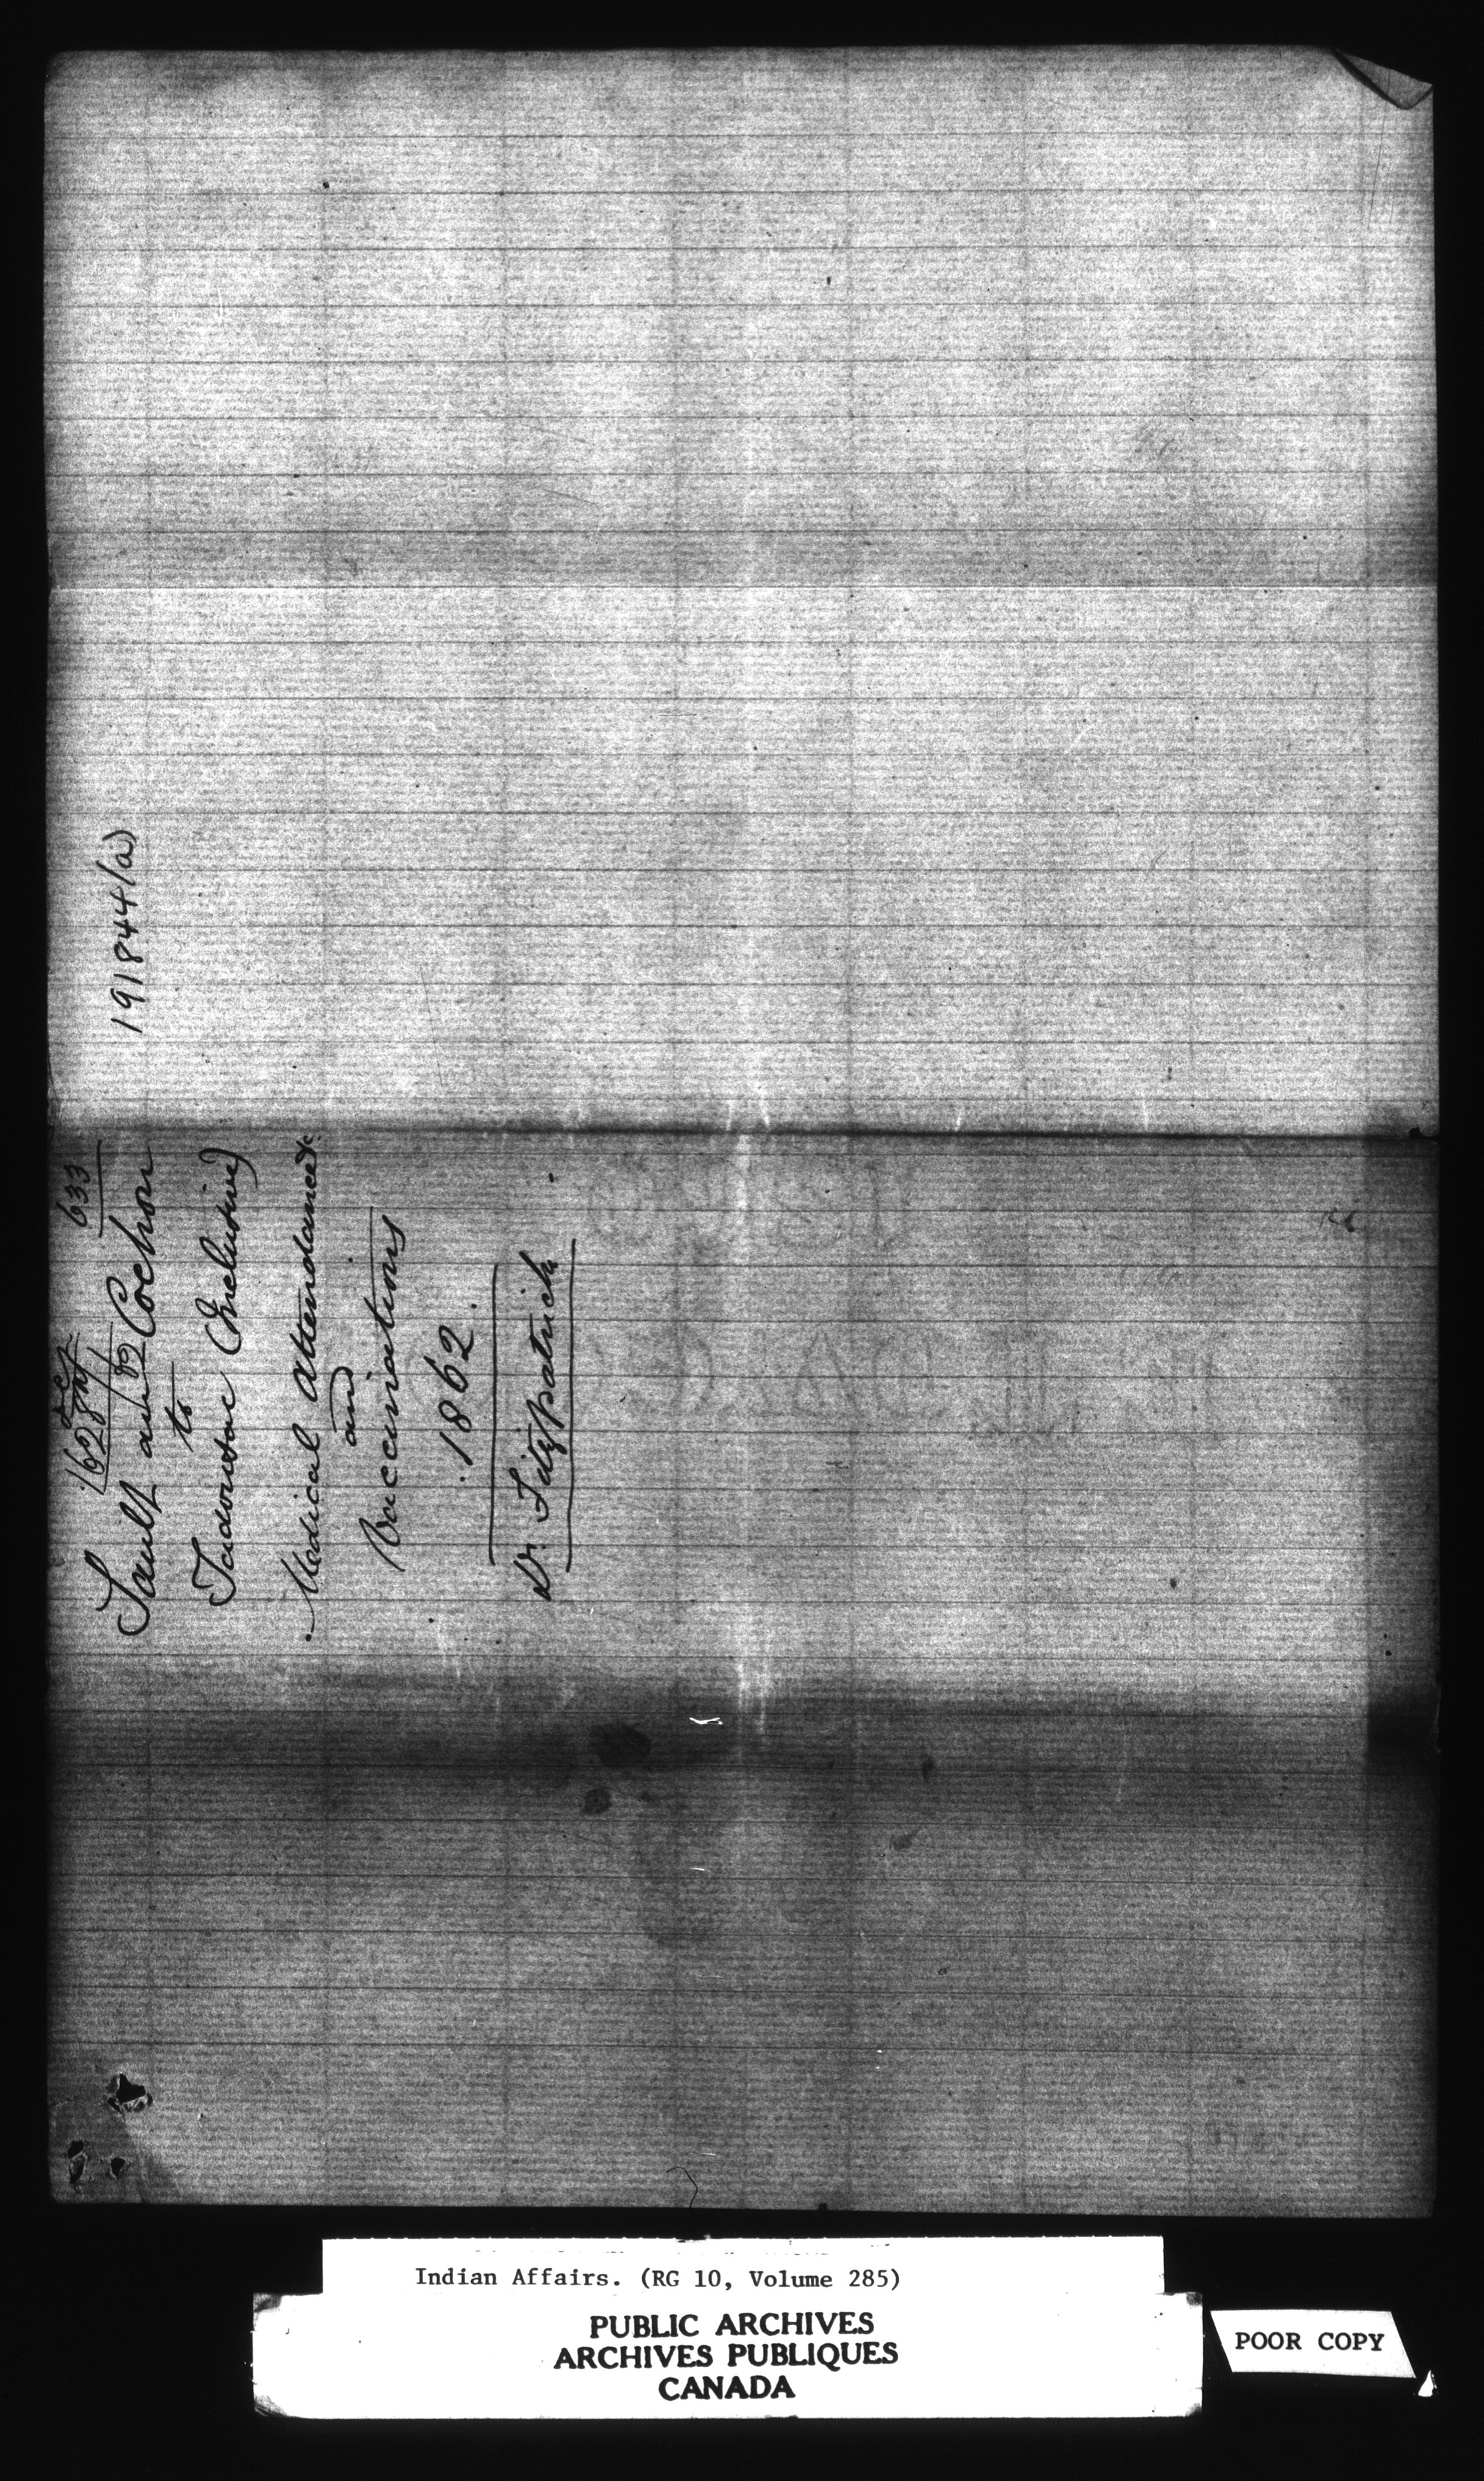 191844(a)
633
Sault au Cochon
to
Tadousac (Inclusive)
Medical Attendance &c
and
Vaccinations
1862.
Dr. Fitzpatrick
Indian Affairs. (RG 10, Volume 285)
PUBLIC ARCHIVES
ARCHIVES PUBLIQUES
CANADA
POOR COPY